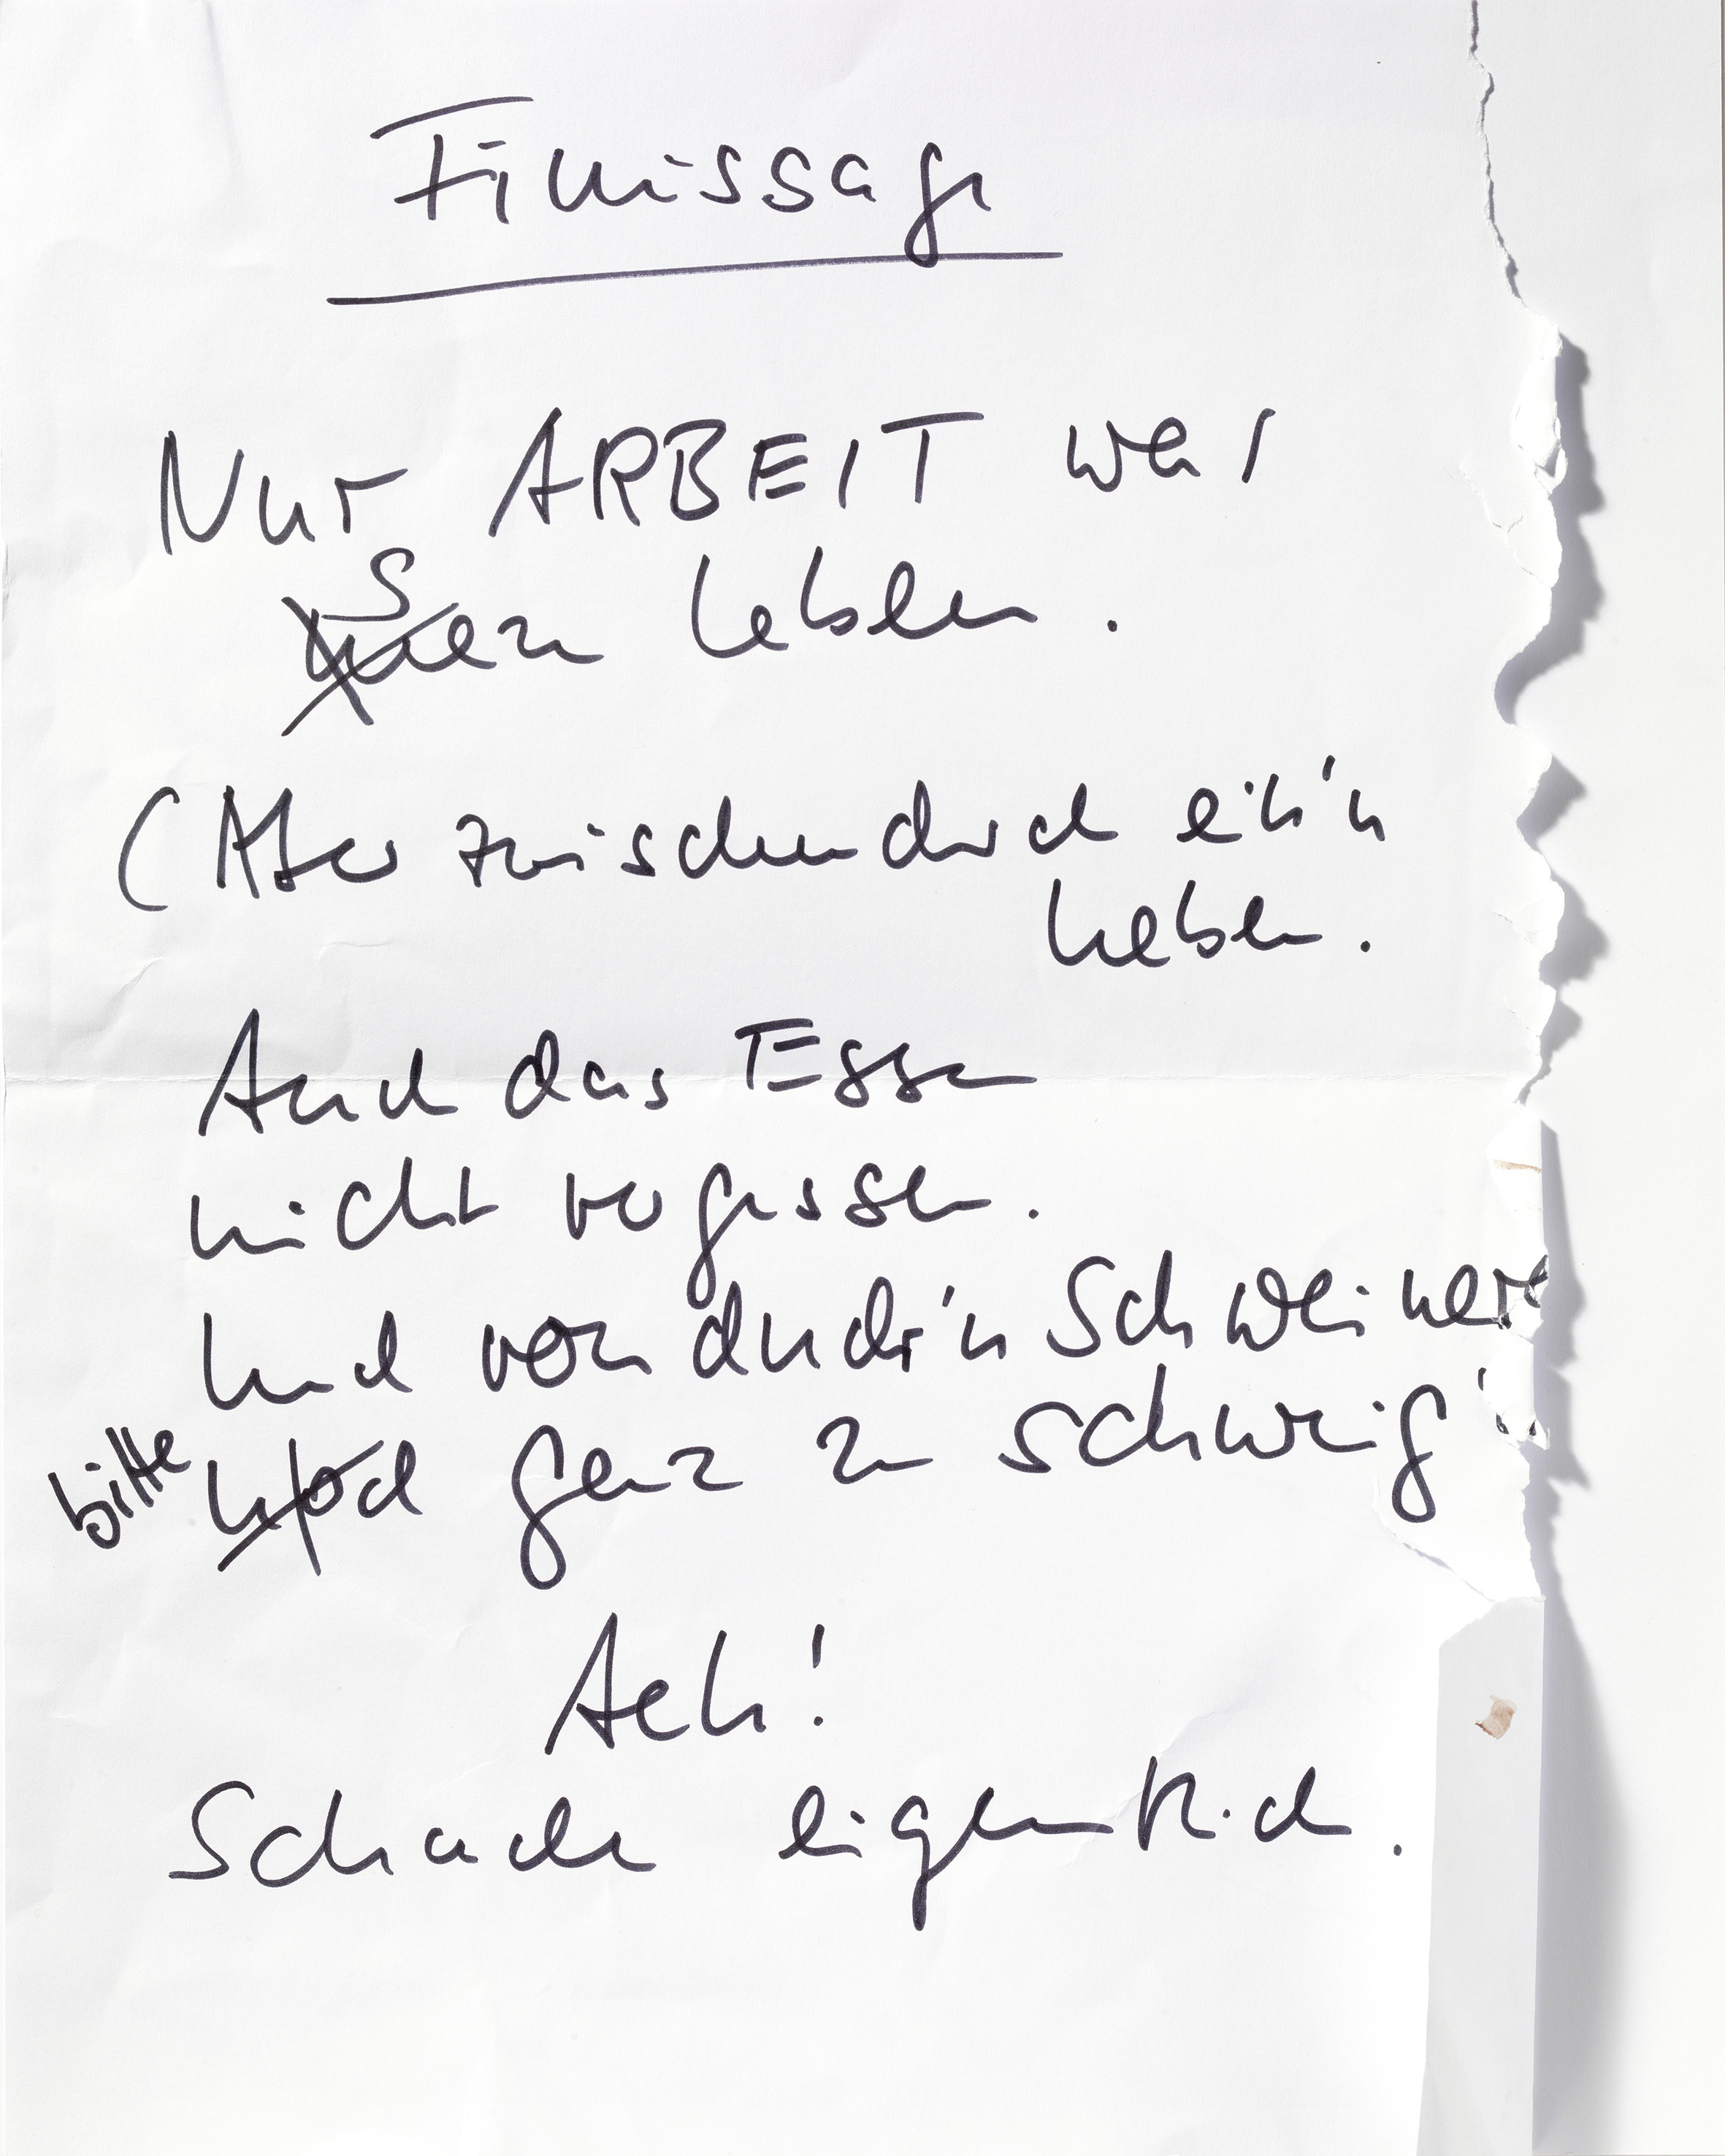 Finissage
Nur ARBEIT war
sein Leben.
(Aber zwischendurch ein'n
heben.
Auch das Essen
nicht vergessen.
Und von andr'n Schweiner
bitte ganz zu schweig'
Ach!
Schade eigentlich.